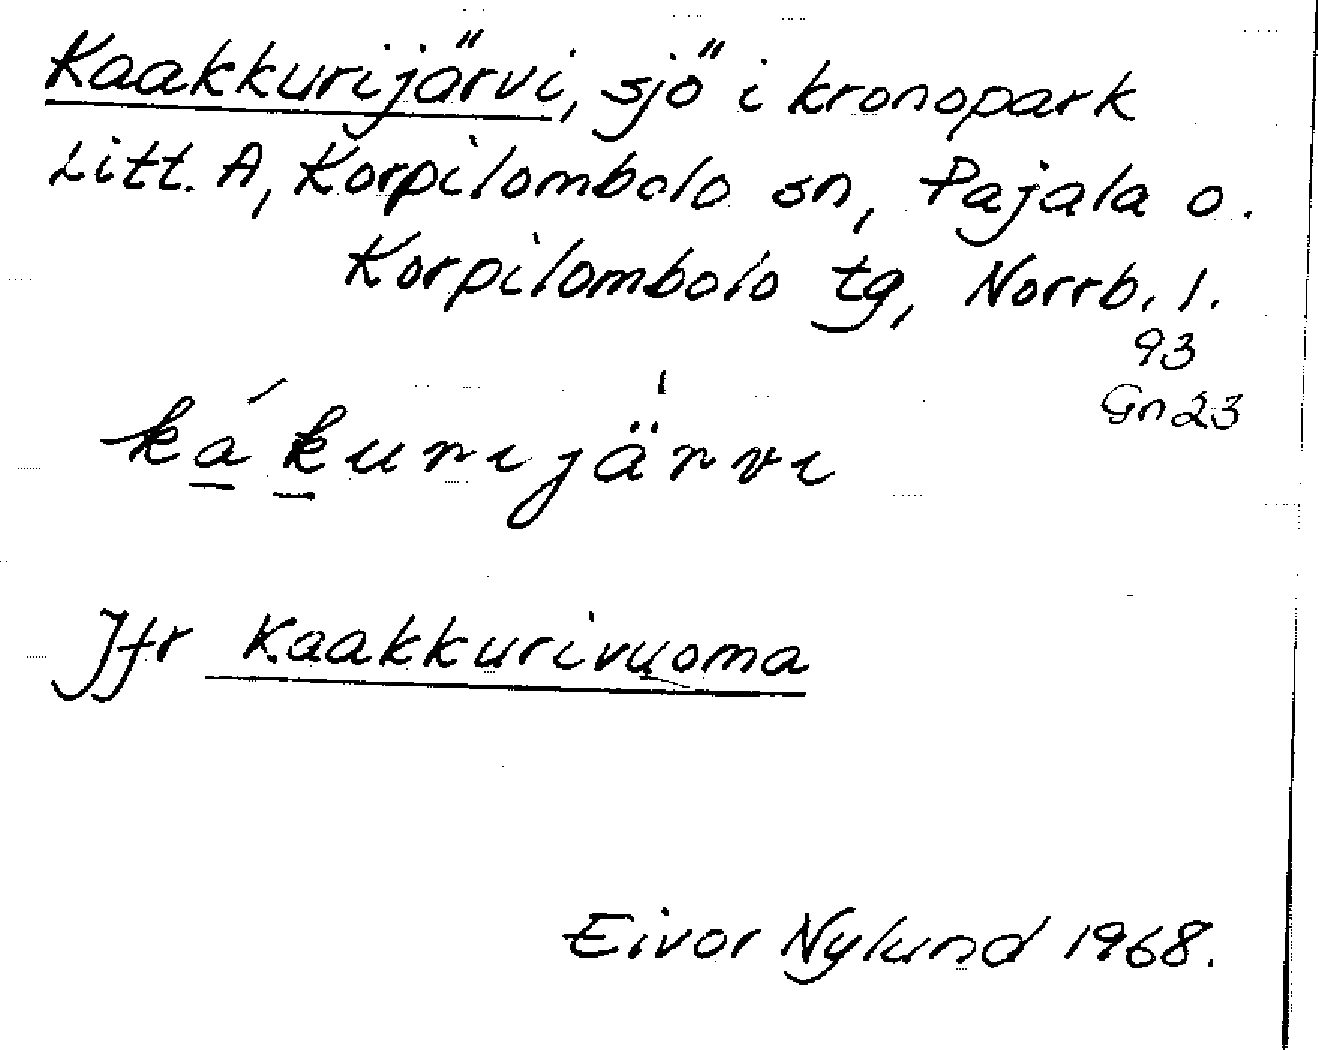 Kaakkurijärvi, sjö i kronopark
Litt. A, Korpilombolo sn, Pajala o.
Korpilombolo tg, Norrb. l.
93
Gn23
ká̱ḵurijä̍rvi
Jfr Kaakkurivuoma
Eivor Nylund 1968.